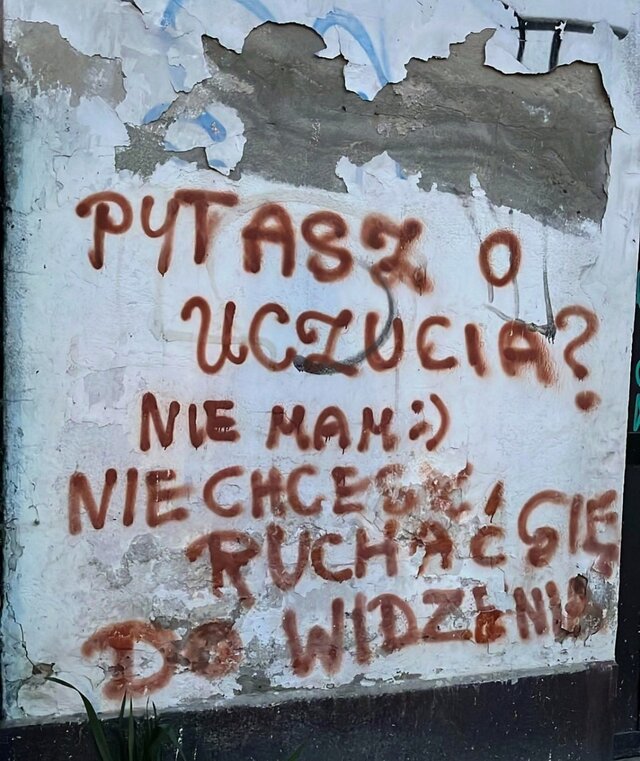 PYTASZ O
UCZUCIA?
NIE MAM :)
NIE CHCESZ,
RUCHAĆ SIĘ
DO WIDZENU